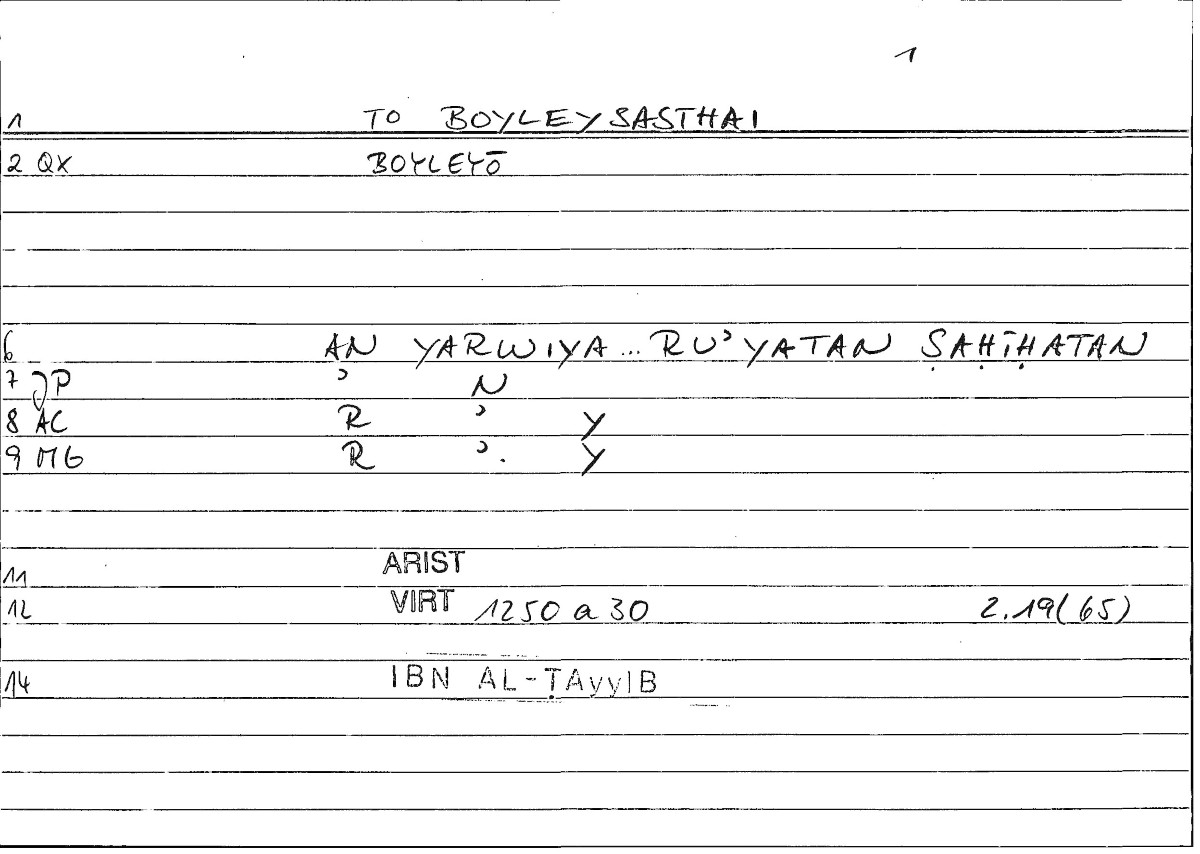 1
1 TO BOYLEYSASTHAI
2 QX BOYLEYŌ
6 AN YARWIYA... RU'YATAN ṢAḤĪḤATAN
7 JP ʾ N
8 AC R ʾ Y
9 MG R ʾ. Y
11 ARIST
12 VIRT 1250 a 30 2.19(65)
14 IBN AL-ṬAyyIB